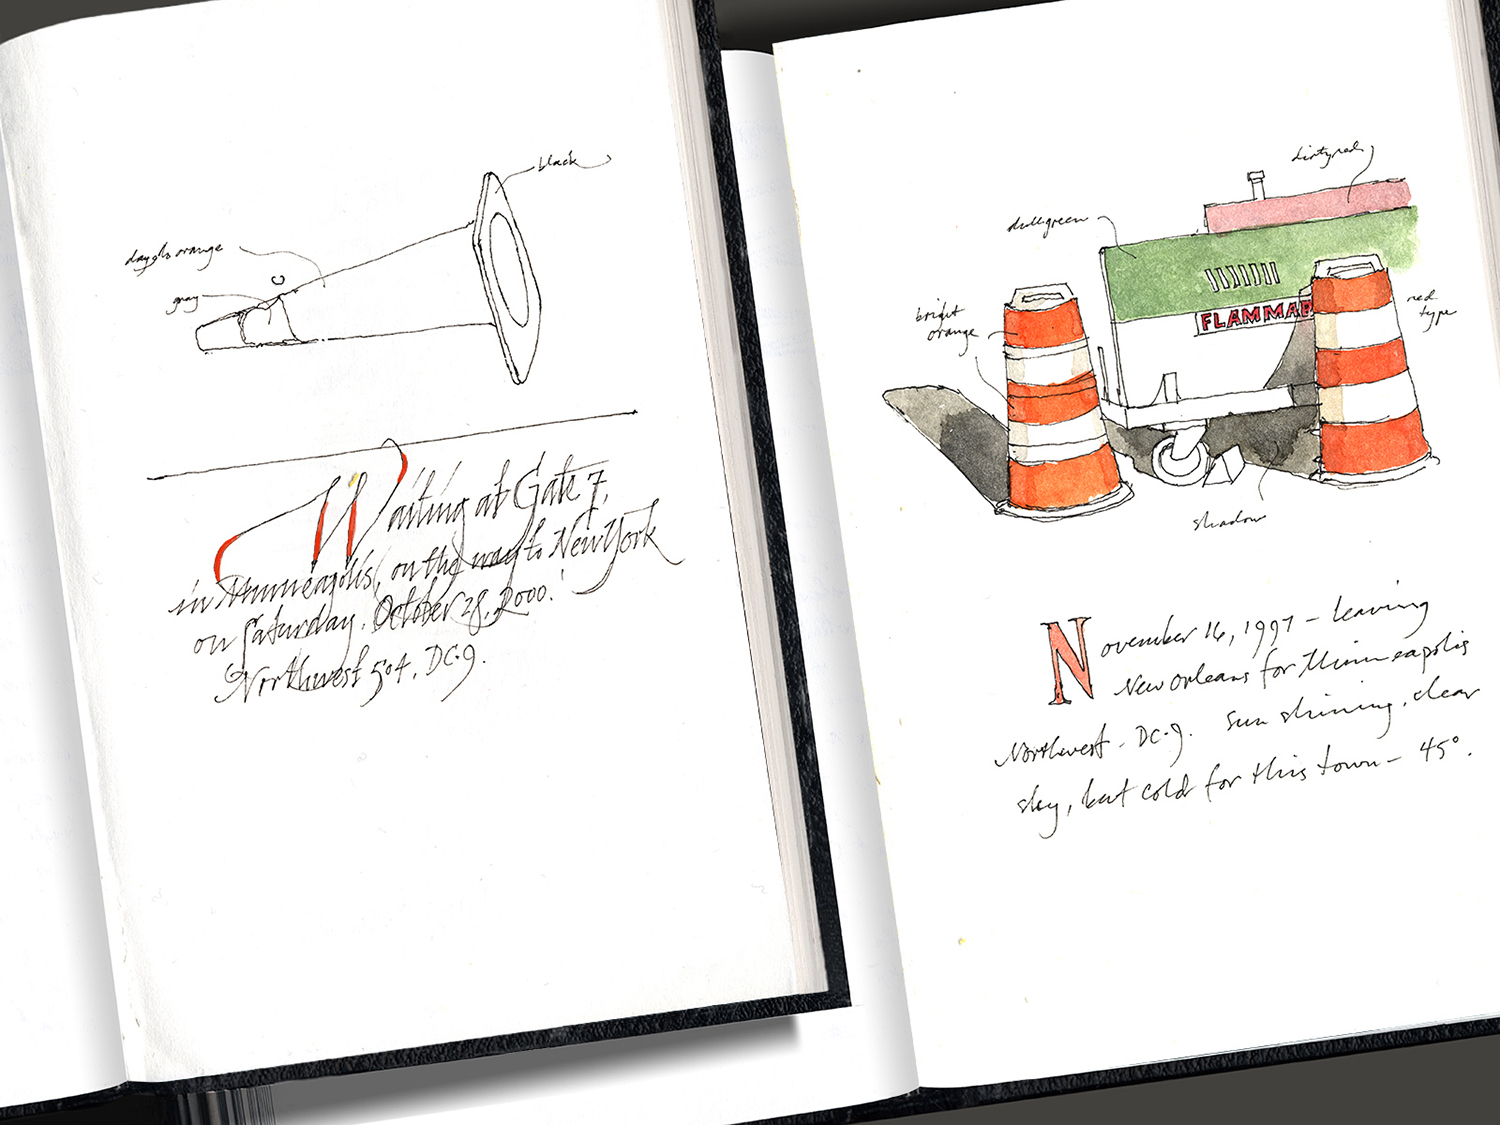 black
dayglo orange
gray
Waiting at Gate 7,
in Minneapolis, on the way to New York
on Saturday, October 28, 2000.
Northwest 504, DC·9.
dirty red
dull green
bright
orange
FLAMMAB
red
type
shadow
November 16, 1997 – leaving
New Orleans for Minneapolis
Northwest – DC·9. Sun shining, clear
sky, but cold for this town – 45°.